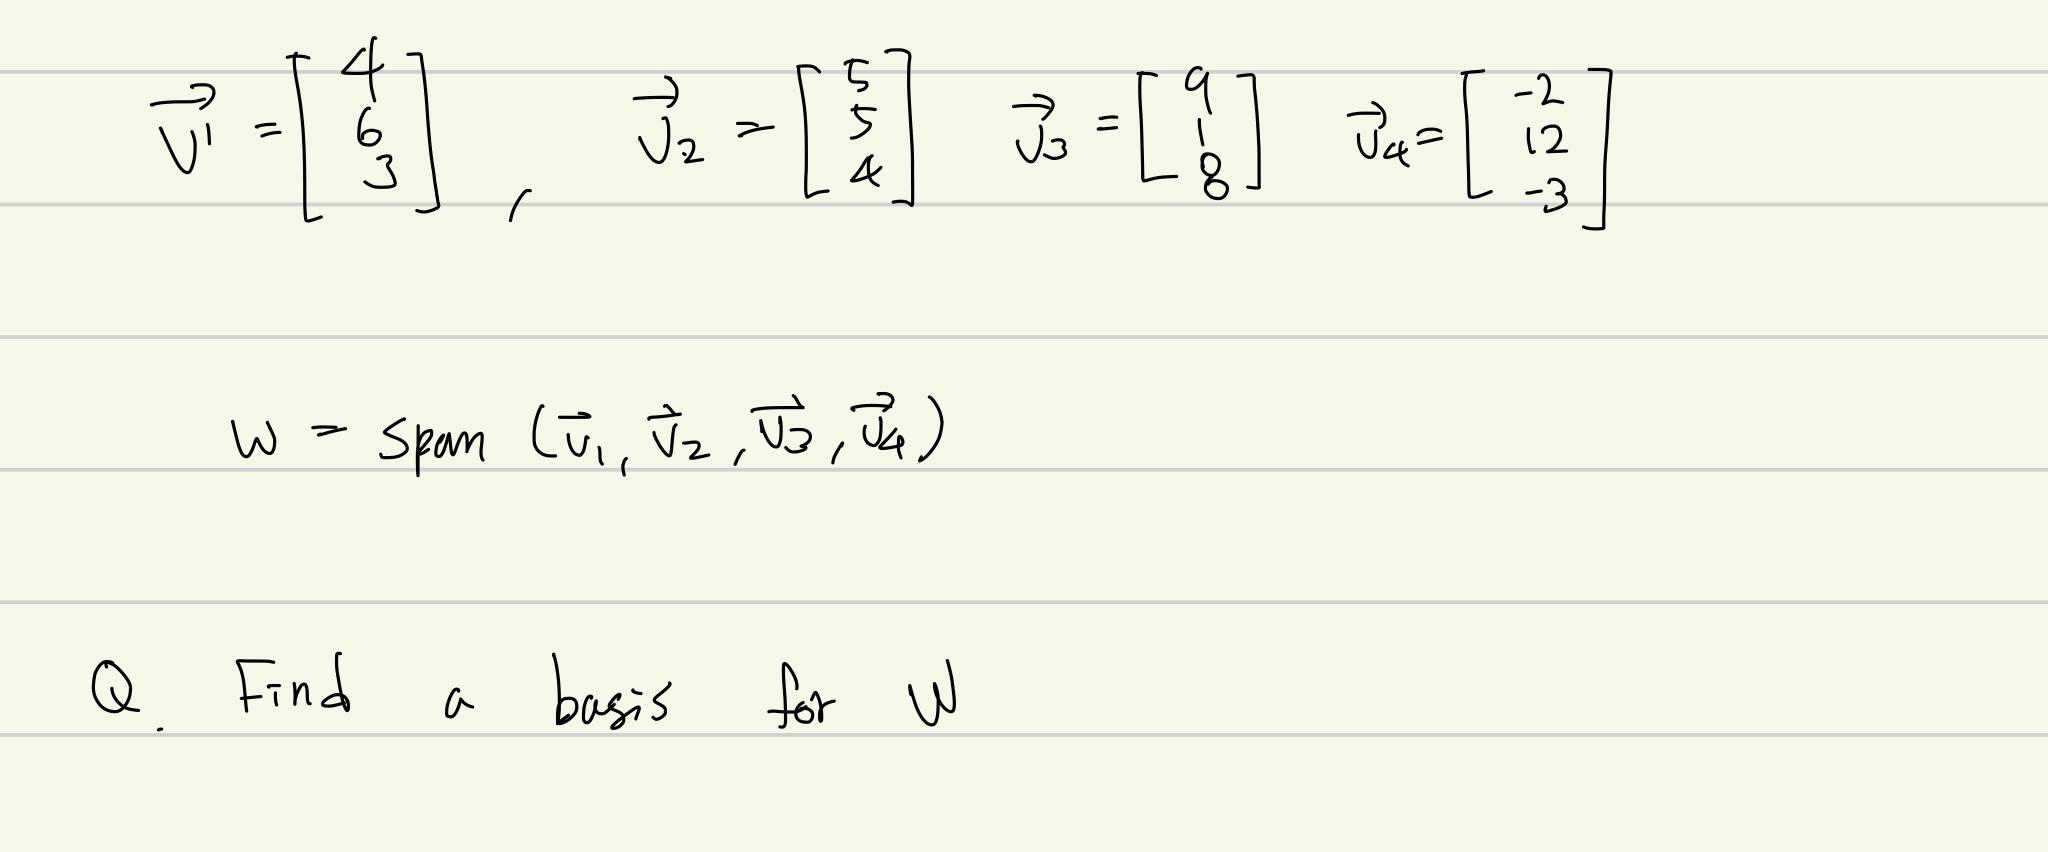 $\vec{v_1} = \begin{bmatrix} 4 \\ 6 \\ 3 \end{bmatrix}, \quad \vec{v_2} = \begin{bmatrix} 5 \\ 5 \\ 4 \end{bmatrix} \quad \vec{v_3} = \begin{bmatrix} 9 \\ 1 \\ 8 \end{bmatrix} \quad \vec{v_4} = \begin{bmatrix} -2 \\ 12 \\ -3 \end{bmatrix}$
$W = \text{span}(\vec{v_1}, \vec{v_2}, \vec{v_3}, \vec{v_4})$
Q. Find a basis for W